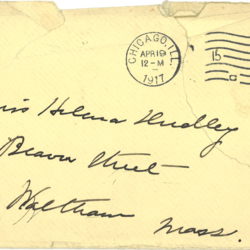 CHICAGO, ILL.
APR 19
12-M
1917
15
a
iss Helena Hudley
Beaver Street
Waltham
Mass.